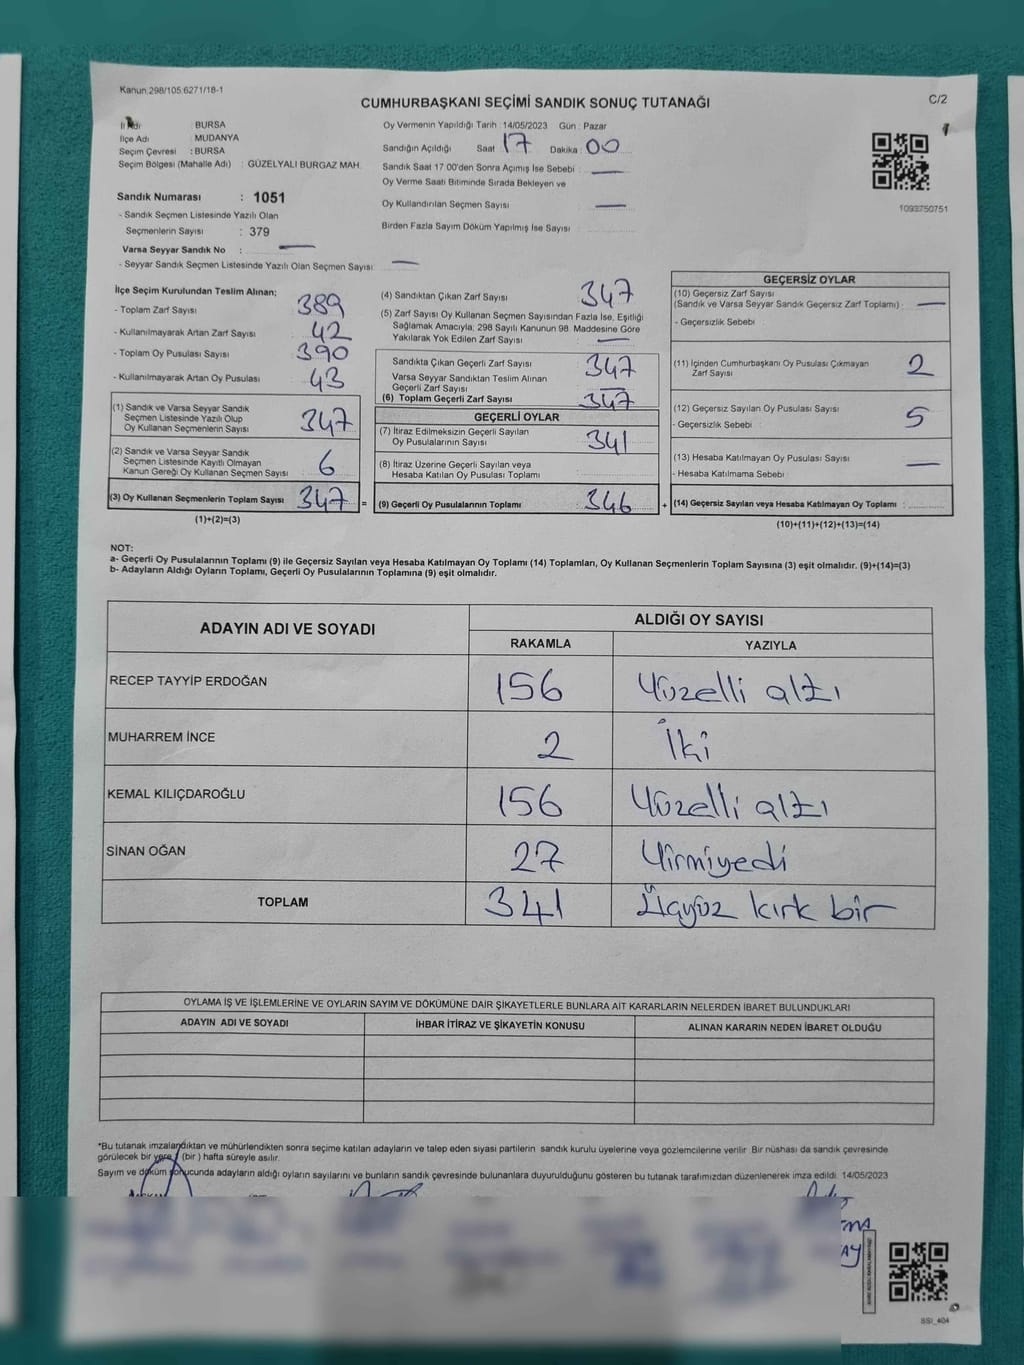 Kanun.298/105.6271/18-1
CUMHURBAŞKANI SEÇİMİ SANDIK SONUÇ TUTANAĞI
C/2
İl Adı : BURSA
İlçe Adı : MUDANYA
Seçim Çevresi : BURSA
Seçim Bölgesi (Mahalle Adı) : GÜZELYALI BURGAZ MAH.
Sandık Numarası : 1051
- Sandık Seçmen Listesinde Yazılı Olan
Seçmenlerin Sayısı : 379
Varsa Seyyar Sandık No : —
- Seyyar Sandık Seçmen Listesinde Yazılı Olan Seçmen Sayısı: —
Oy Vermenin Yapıldığı Tarih : 14/05/2023 Gün : Pazar
Sandığın Açıldığı Saat : 17 Dakika : 00
Sandık Saat 17:00'den Sonra Açımış İse Sebebi : —
Oy Verme Saati Bitiminde Sırada Bekleyen ve
Oy Kullandırılan Seçmen Sayısı : —
Birden Fazla Sayım Döküm Yapılmış İse Sayısı :
1093750751
İlçe Seçim Kurulundan Teslim Alınan;
- Toplam Zarf Sayısı : 389
- Kullanılmayarak Artan Zarf Sayısı : 42
- Toplam Oy Pusulası Sayısı : 390
- Kullanılmayarak Artan Oy Pusulası : 43
(1) Sandık ve Varsa Seyyar Sandık
Seçmen Listesinde Yazılı Olup
Oy Kullanan Seçmenlerin Sayısı : 347
(2) Sandık ve Varsa Seyyar Sandık
Seçmen Listesinde Kayıtlı Olmayan
Kanun Gereği Oy Kullanan Seçmen Sayısı : 6
(3) Oy Kullanan Seçmenlerin Toplam Sayısı : 347 =
(1)+(2)=(3)
(4) Sandıktan Çıkan Zarf Sayısı : 347
(5) Zarf Sayısı Oy Kullanan Seçmen Sayısından Fazla İse, Eşitliği
Sağlamak Amacıyla; 298 Sayılı Kanunun 98. Maddesine Göre
Yakılarak Yok Edilen Zarf Sayısı : —
Sandıkta Çıkan Geçerli Zarf Sayısı : 347
Varsa Seyyar Sandıktan Teslim Alınan
Geçerli Zarf Sayısı : —
(6) Toplam Geçerli Zarf Sayısı : 347
GEÇERLİ OYLAR
(7) İtiraz Edilmeksizin Geçerli Sayılan
Oy Pusulalarının Sayısı : 341
(8) İtiraz Üzerine Geçerli Sayılan veya
Hesaba Katılan Oy Pusulası Toplamı :
(9) Geçerli Oy Pusulalarının Toplamı : 346 +
GEÇERSİZ OYLAR
(10) Geçersiz Zarf Sayısı
(Sandık ve Varsa Seyyar Sandık Geçersiz Zarf Toplamı) : —
- Geçersizlik Sebebi :
(11) İçinden Cumhurbaşkanı Oy Pusulası Çıkmayan
Zarf Sayısı : 2
(12) Geçersiz Sayılan Oy Pusulası Sayısı : 5
- Geçersizlik Sebebi :
(13) Hesaba Katılmayan Oy Pusulası Sayısı : —
- Hesaba Katılmama Sebebi :
(14) Geçersiz Sayılan veya Hesaba Katılmayan Oy Toplamı :
(10)+(11)+(12)+(13)=(14)
NOT:
a- Geçerli Oy Pusulalarının Toplamı (9) ile Geçersiz Sayılan veya Hesaba Katılmayan Oy Toplamı (14) Toplamları, Oy Kullanan Seçmenlerin Toplam Sayısına (3) eşit olmalıdır. (9)+(14)=(3)
b- Adayların Aldığı Oyların Toplamı, Geçerli Oy Pusulalarının Toplamına (9) eşit olmalıdır.
ADAYIN ADI VE SOYADI
ALDIĞI OY SAYISI
RAKAMLA YAZIYLA
RECEP TAYYİP ERDOĞAN 156 Yüzelli altı
MUHARREM İNCE 2 İki
KEMAL KILIÇDAROĞLU 156 Yüzelli altı
SİNAN OĞAN 27 Yirmiyedi
TOPLAM 341 Üçyüz kırk bir
OYLAMA İŞ VE İŞLEMLERİNE VE OYLARIN SAYIM VE DÖKÜMÜNE DAİR ŞİKAYETLERLE BUNLARA AİT KARARLARIN NELERDEN İBARET BULUNDUKLARI
ADAYIN ADI VE SOYADI İHBAR İTİRAZ VE ŞİKAYETİN KONUSU ALINAN KARARIN NEDEN İBARET OLDUĞU
*Bu tutanak imzalandıktan ve mühürlendikten sonra seçime katılan adayların ve talep eden siyasi partilerin sandık kurulu üyelerine veya gözlemcilerine verilir. Bir nüshası da sandık çevresinde
görülecek bir yere 1 (bir) hafta süreyle asılır.
Sayım ve döküm sonucunda adayların aldığı oyların sayılarını ve bunların sandık çevresinde bulunanlara duyurulduğunu gösteren bu tutanak tarafımızdan düzenlenerek imza edildi. 14/05/2023
SSI_404